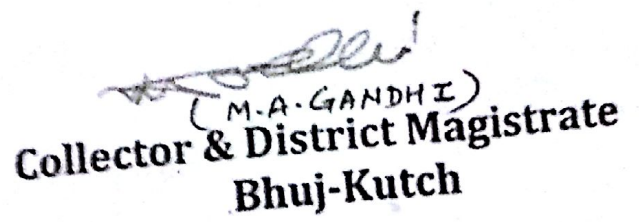 ( M.A. GANDHI )
Collector & District Magistrate
Bhuj-Kutch